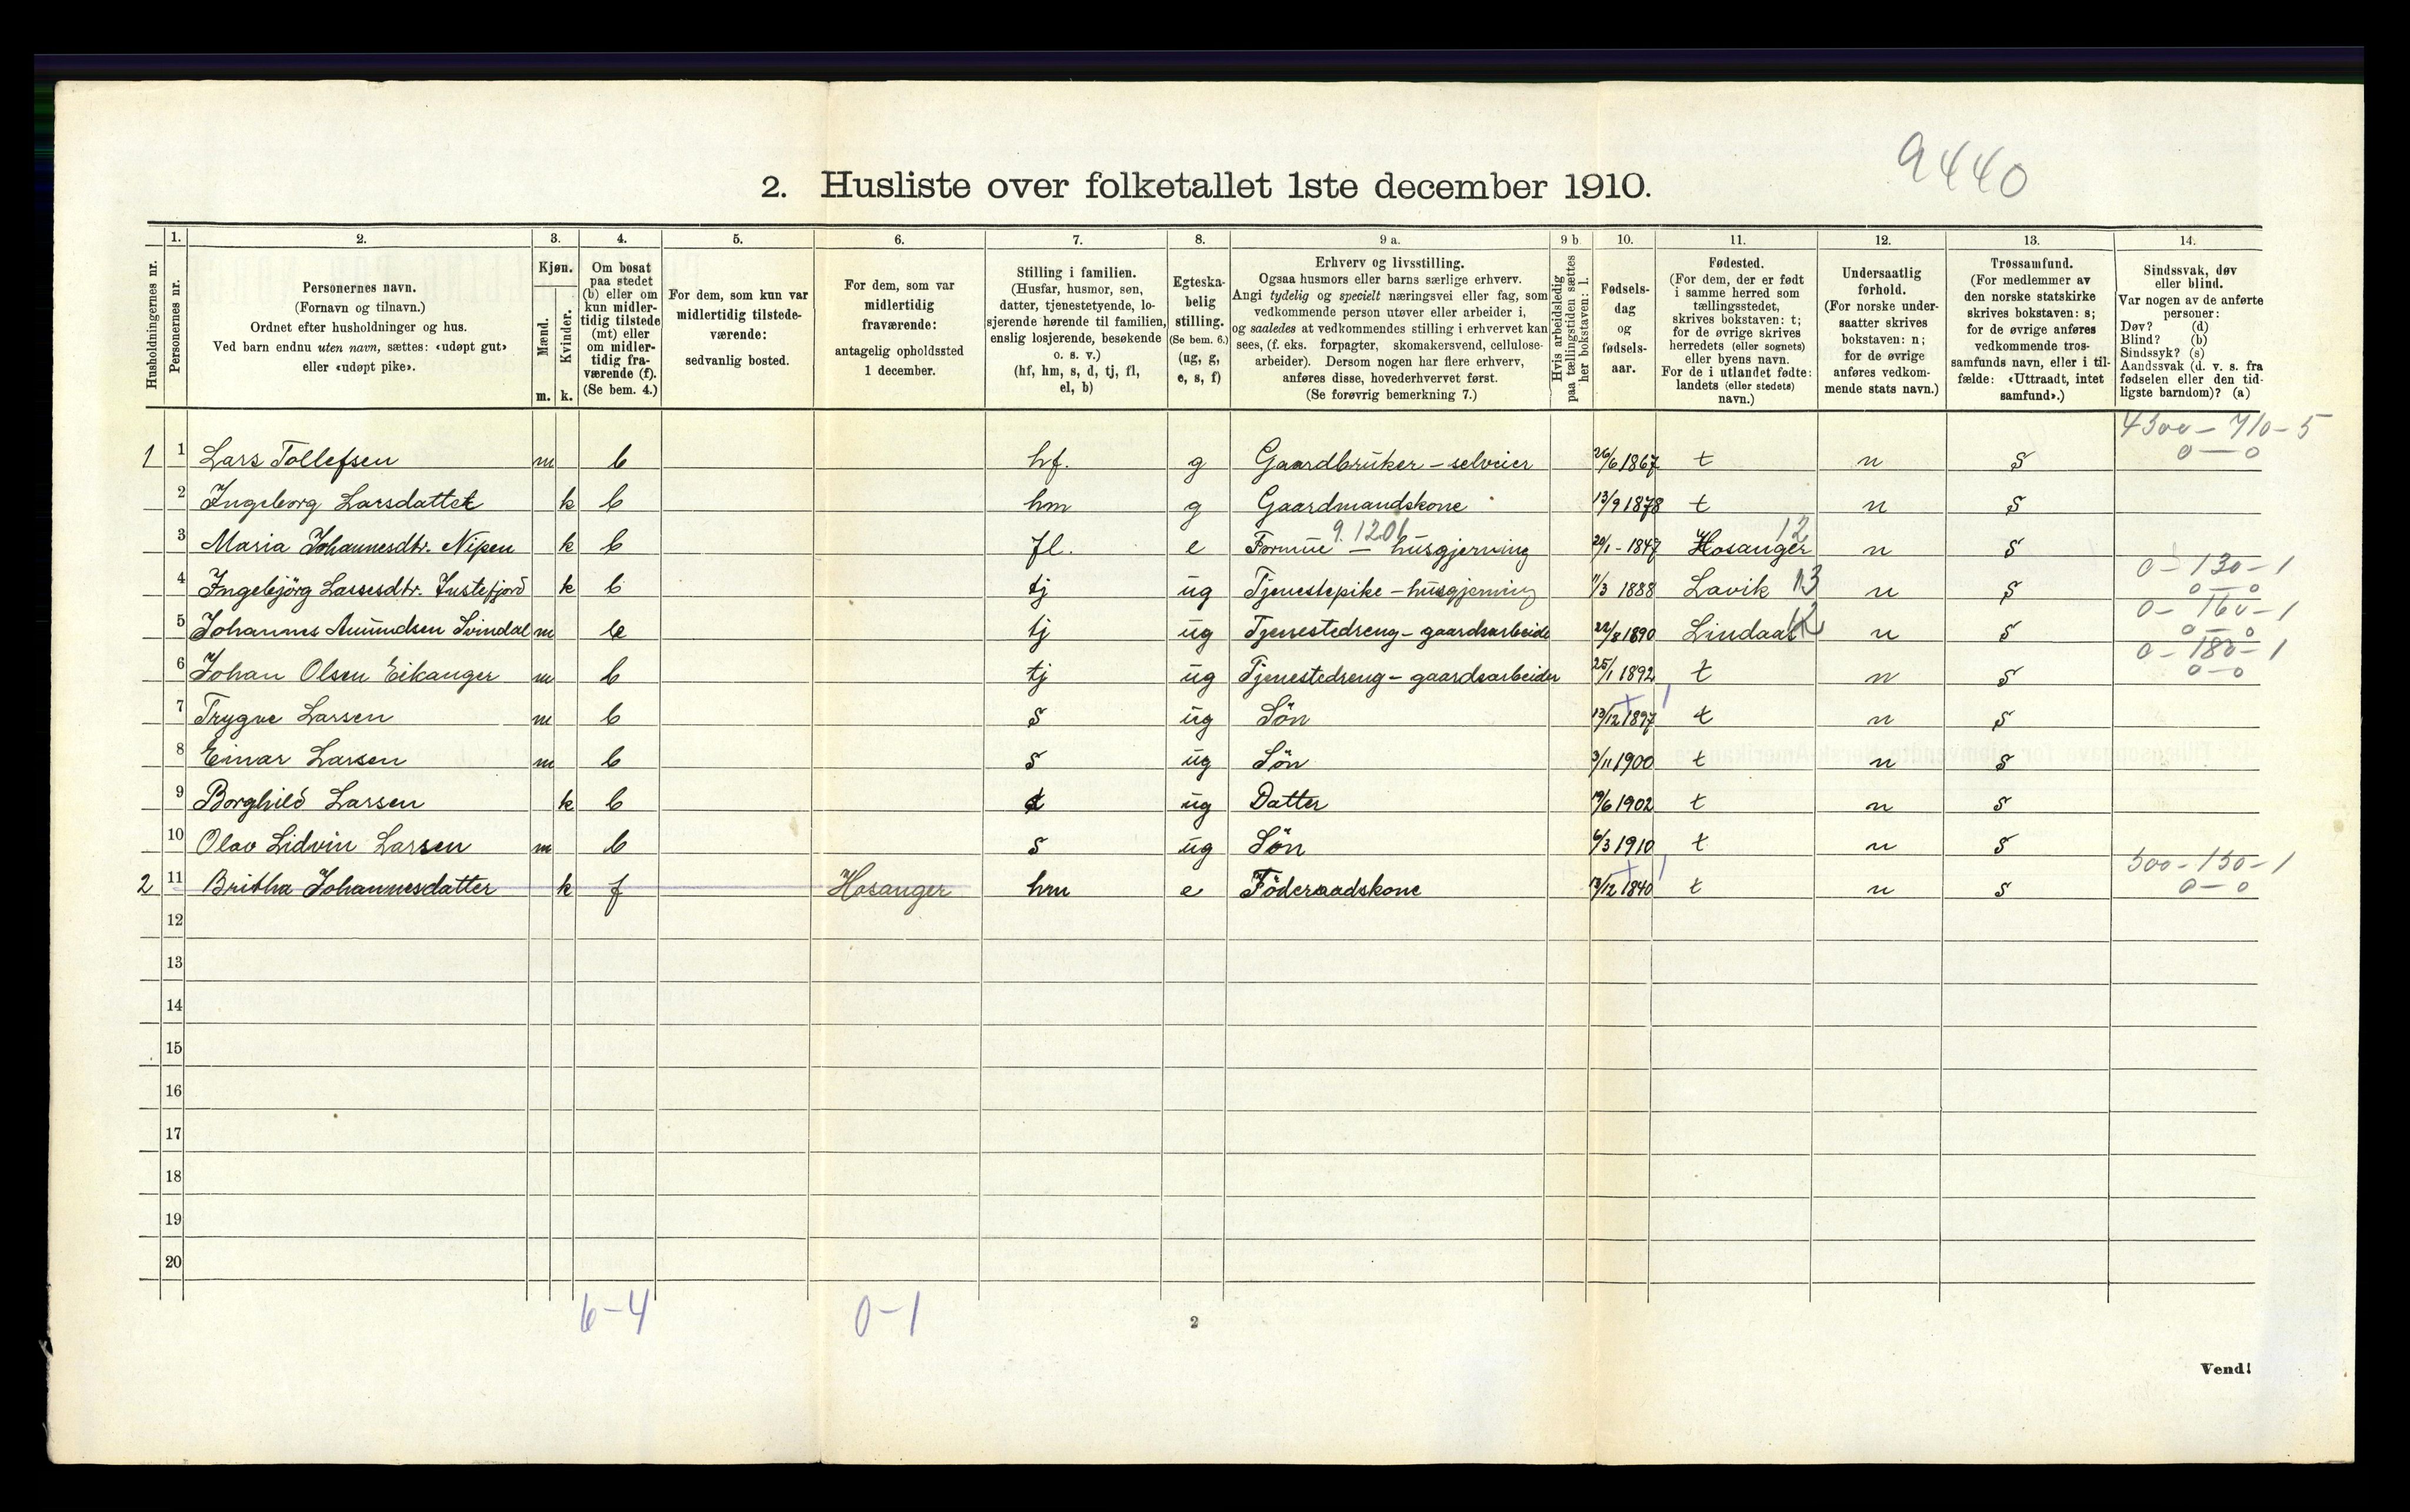 9440
2. Husliste over folketallet 1ste december 1910.
Husholdningernes nr.
1. Personernes nr.
2. Personernes navn.
(Fornavn og tilnavn.)
Ordnet efter husholdninger og hus.
Ved barn endnu uten navn, sættes: «udøpt gut»
eller «udøpt pike».
3. Kjøn.
Mænd. Kvinder.
m. k.
4. Om bosat
paa stedet
(b) eller om
kun midler-
tidig tilstede
(mt) eller
om midler-
tidig fra-
værende (f).
(Se bem. 4.)
5. For dem, som kun var
midlertidig tilstede-
værende:
sedvanlig bosted.
6. For dem, som var
midlertidig
fraværende:
antagelig opholdssted
1 december.
7. Stilling i familien.
(Husfar, husmor, søn,
datter, tjenestetyende, lo-
sjerende hørende til familien,
enslig losjerende, besøkende
o. s. v.)
(hf, hm, s, d, tj, fl,
el, b)
8. Egteska-
belig
stilling.
(Se bem. 6.)
(ug, g,
e, s, f)
9 a. Erhverv og livsstilling.
Ogsaa husmors eller barns særlige erhverv.
Angi tydelig og specielt næringsvei eller fag, som
vedkommende person utøver eller arbeider i,
og saaledes at vedkommendes stilling i erhvervet kan
sees, (f. eks. forpagter, skomakersvend, cellulose-
arbeider). Dersom nogen har flere erhverv,
anføres disse, hovederhvervet først.
(Se forøvrig bemerkning 7.)
9 b. Hvis arbeidsledig
paa tællingstiden sættes
her bokstaven: l.
10. Fødsels-
dag
og
fødsels-
aar.
11. Fødested.
(For dem, der er født
i samme herred som
tællingsstedet,
skrives bokstaven: t;
for de øvrige skrives
herredets (eller sognets)
eller byens navn.
For de i utlandet fødte:
landets (eller stedets)
navn.)
12. Undersaatlig
forhold.
(For norske under-
saatter skrives
bokstaven: n;
for de øvrige
anføres vedkom-
mende stats navn.)
13. Trossamfund.
(For medlemmer av
den norske statskirke
skrives bokstaven: s;
for de øvrige anføres
vedkommende tros-
samfunds navn, eller i til-
fælde: «Uttraadt, intet
samfund».)
14. Sindssvak, døv
eller blind.
Var nogen av de anførte
personer:
Døv? (d)
Blind? (b)
Sindssyk? (s)
Aandssvak (d. v. s. fra
fødselen eller den tid-
ligste barndom)? (a)
4300 - 710 - 5
1 1 Lars Tollefsen m b hf. g Gaardbruker - selveier 26/6 1867 t n s 0 - 0
2 Ingeborg Larsdatter k b hm g Gaardmandskone 13/9 1878 t n s
9.1201 12
3 Maria Johannesdtr. Nipen k b fl. e Formue - husgjerning 20/1 - 1847 Hosanger n s
0 - 130 - 1
4 Ingebjörg Lassesdtr. k b tj ug Tjenestepike - husgjerning 11/3 1888 Lavik 13 n s 0 - 0
0 - 160 - 1
5 Johannes Amundsen Svindal m b tj ug Tjenestedreng - gaardsarbeide 22/8 1890 Lindaas 12 n s 0 - 0
0 - 180 - 1
6 Johan Olsen Eikanger m b tj ug Tjenestedreng - gaardsarbeider 25/1 1892 t n s 0 - 0
7 Trygve Larsen m b s ug Sön 13/12 1897 t n s
8 Einar Larsen m b s ug Sön 3/11 1900 t n s
9 Borghild Larsen k b d ug Datter 19/6 1902 t n s
10 Olav Lidvin Larsen m b s ug Sön 6/3 1910 t n s
500 - 150 - 1
2 11 Britha Johannesdatter k f Hosanger hm e Föderaadskone 13/12 1840 t n s 0 - 0
12
13
14
15
16
17
18
19
20
6 - 4 0 - 1
2
Vend!